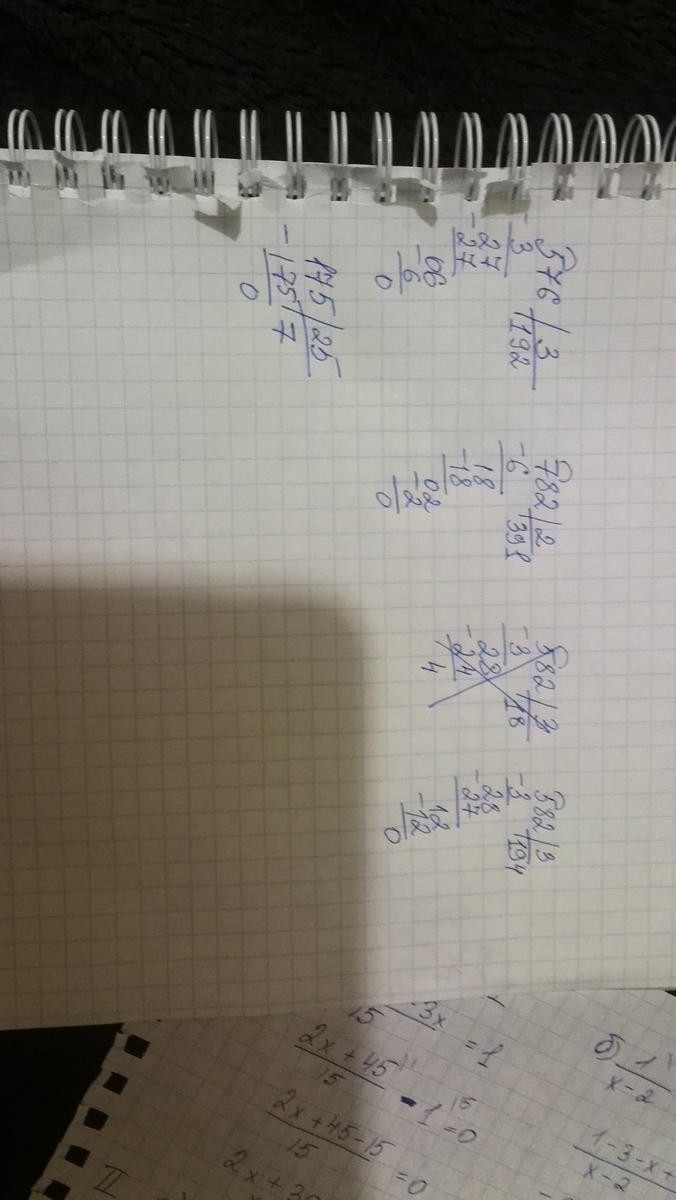 576 | 3
-3 | 192
27
-27
06
-6
0
782 | 2
-6 | 391
18
-18
02
-2
0
582 | 3
-3 | 18
28
-24
4
582 | 3
-3 | 194
28
-27
12
-12
0
175 | 25
-175 | 7
0
3x
15
= 1
2x + 45
15
- 1 = 0
15
2x + 45 - 15
15
= 0
2x + 30
II
б) 1
x - 2
1 - 3 - x +
x - 2